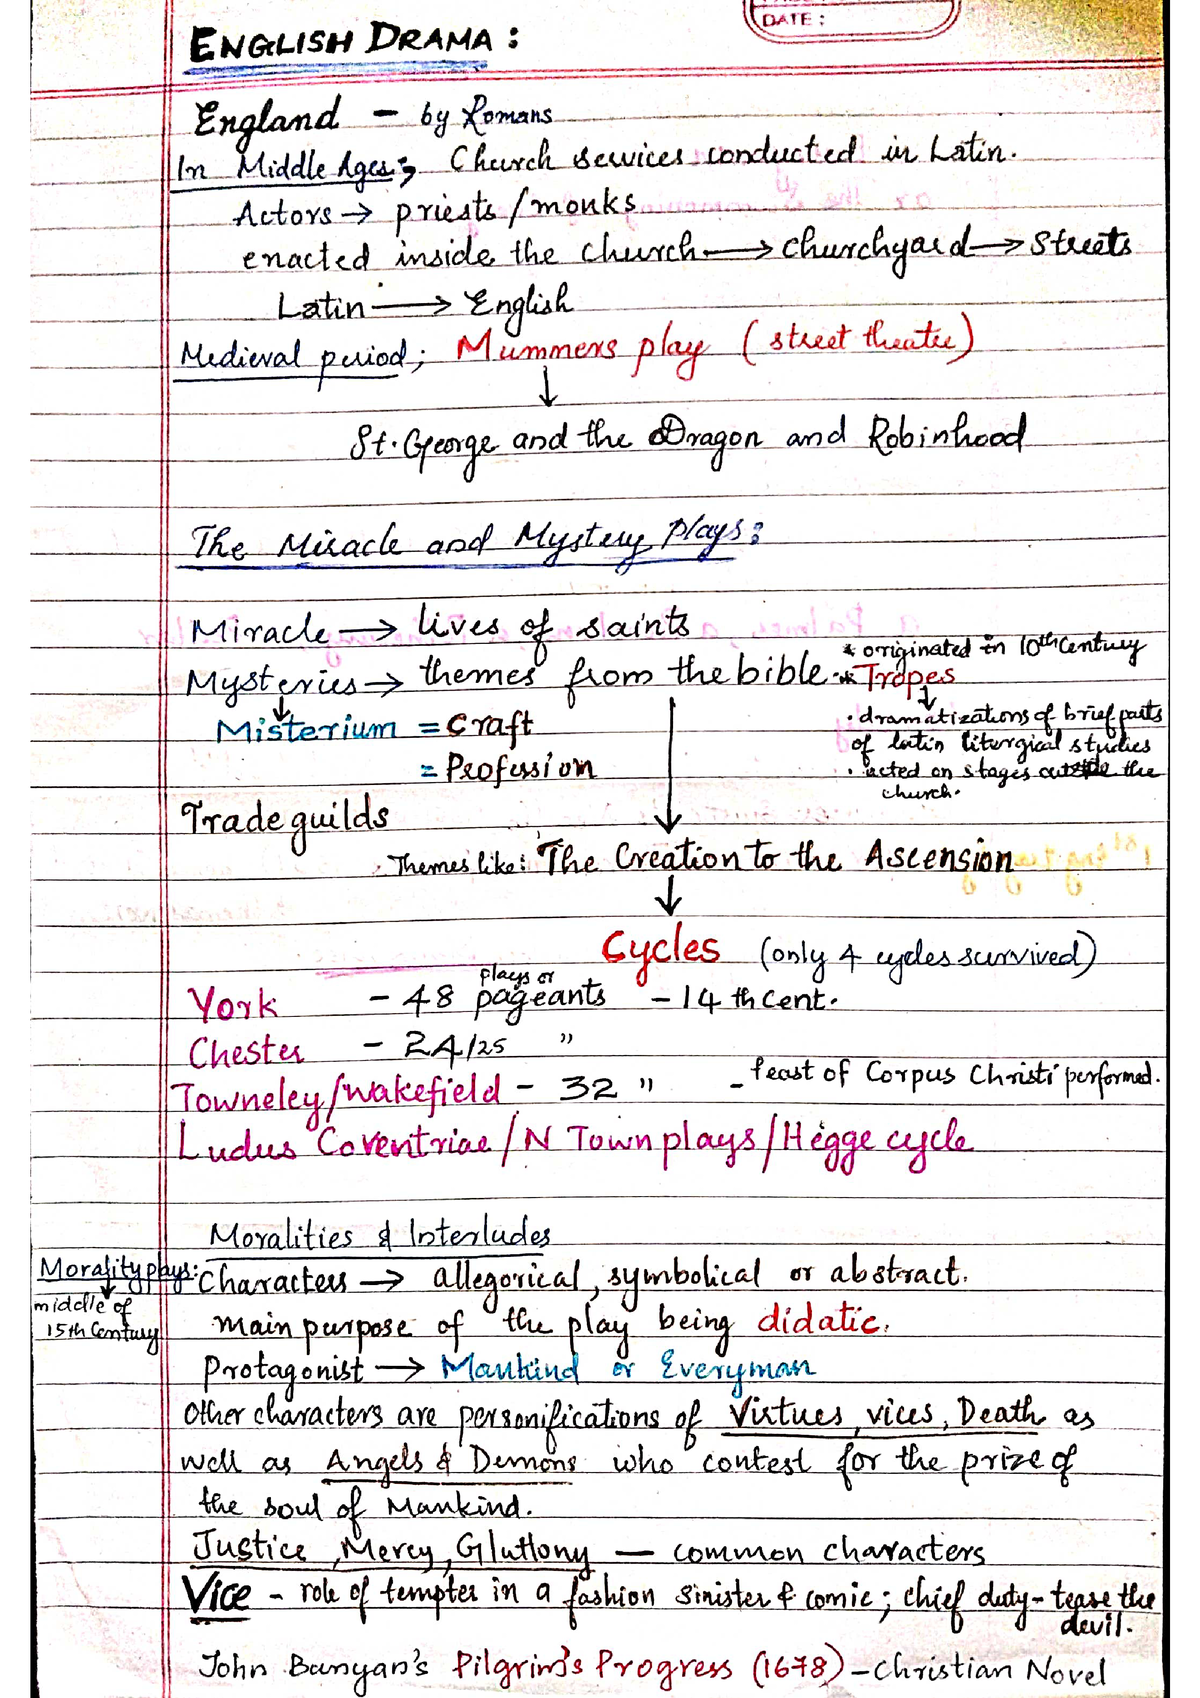 DATE :
ENGLISH DRAMA :
England - by Romans
In Middle Ages; Church services conducted in Latin.
Actors → priests / monks
enacted inside the church → churchyard → Streets
Latin → English
Medieval period; Mummers play (street theatre)
↓
St. George and the Dragon and Robinhood
The Miracle and Mystery Plays:
Miracle → lives of saints
* originated in 10th Century
Mysteries → themes from the bible * Tropes
Misterium = Craft
= Profession
. dramatizations of brief parts
of latin liturgical studies
. acted on stages outside the
church.
Trade guilds
. Themes like: The Creation to the Ascension
↓
Cycles (only 4 cycles survived)
plays or
York - 48 pageants - 14 th Cent.
Chester - 24/25 "
Towneley/Wakefield - 32 " - feast of Corpus Christi performed.
Ludus Coventriae / N Town plays / Hegge cycle
Moralities & Interludes
Morality plays: Characters → allegorical, symbolical or abstract.
middle of
15th Century
main purpose of the play being didatic.
Protagonist → Mankind or Everyman
Other characters are personifications of Virtues, vices, Death as
well as Angels & Demons who contest for the prize of
the soul of Mankind.
Justice, Mercy, Gluttony — common characters
Vice - role of tempter in a fashion sinister & comic; chief duty - tease the
devil.
John Bunyan's Pilgrim's Progress (1678) - Christian Novel